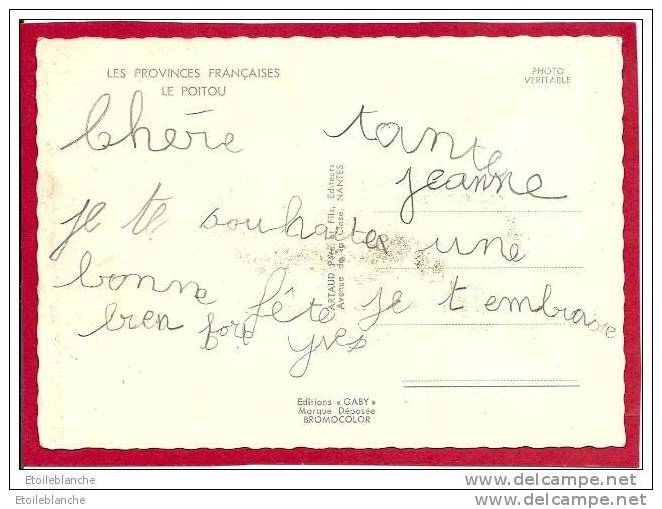 LES PROVINCES FRANÇAISES
LE POITOU
PHOTO
VERITABLE
Chère tante
jeanne
je te souhaites une
bonne fête je t embrasse
bien fort yves
ARTAUD Père et Fils, Editeurs
Avenue de la Close, NANTES
Editions « GABY »
Marque Déposée
BROMOCOLOR
Etoileblanche
Etoileblanche
www.delcampe.net